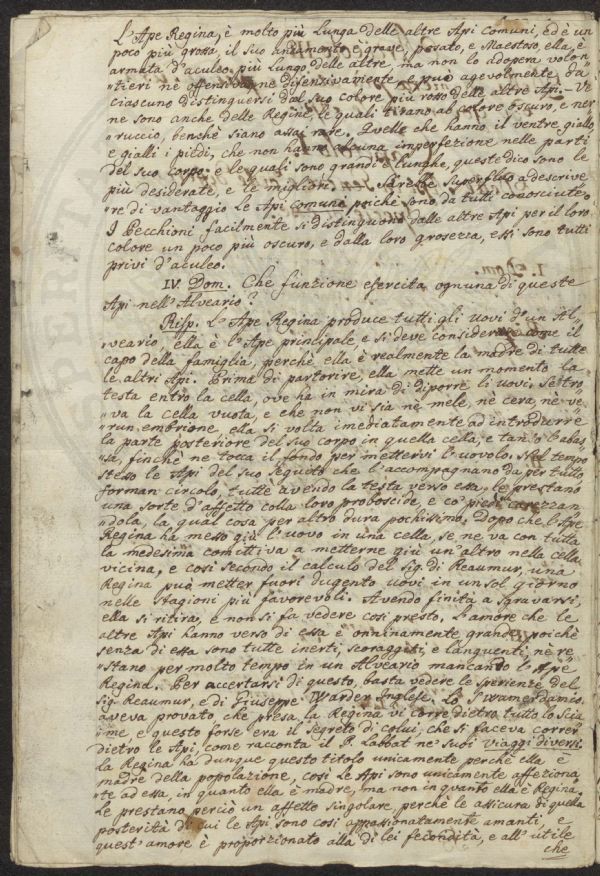 L'Ape Regina, è molto più lunga delle altre Api comuni, ed è un
poco più grossa, il suo andamento è grave, posato, e Maestoso, ella è
armata d'aculeo più lungo delle altre, ma non lo adopera volon
=tieri nè offensivam ne difensivamente, e può agevolmente da
ciascuno distinguersi dal suo colore più rosso delle altre Api. Ve
ne sono anche delle Regine, le quali tirano al colore oscuro, e ner
=ruccio, benchè siano assai rare. Quelle che hanno il ventre giallo,
e gialli i piedi, che non hanno alcuna imperfezione nelle parti
del suo corpo, e le quali sono grandi e lunghe, queste dico sono le
più desiderate, e le migliori. Sarebbe superfluo a descrive
=re di vantaggio le Api comuni poichè sono da tutti conosciute.
I Pecchioni facilmente si distinguono dalle altre Api per il loro
colore un poco più oscuro, e dalla loro grosezza, essi sono tutti
privi d'aculeo.
IV. Dom. Che funzione esercita ognuna di queste
Api nell'Alveario?
Risp. L'Ape Regina produce tutti gli uovi d'un Al
=veario, ella è l'Ape principale, e si deve considerare come il
capo della famiglia, perchè ella è realmente la madre di tutte
le altri Api. Prima di partorire, ella mette un momento la
testa entro la cella, ove ha in mira di diporre li uovi. Se tro
=va la cella vuota, e che non vi sia nè mele, nè cera, nè ve=
=run embrione, ella si volta imediatamente ad introdurre
la parte posteriore del suo corpo in quella cella, e tanto l'abas
=sa, finchè ne tocca il fondo per mettervi l'uovolo. Nel tempo
stesso le Api del suo seguito che l'accompagnano da per tutto,
forman circolo, tutte avendo la testa verso essa, le prestano
una sorte d'affetto colla loro proboscide, e co' piedi carezzan
=dola, la qual cosa per altro dura pochissimo. Dopo che l'Ape
Regina ha messo giù l'uovo in una cella, se ne va con tutta
la medesima comittiva a metterne giù un'altro nella cella
vicina, e così secondo il calcolo del Sig. di Reaumur, una
Regina può metter fuori dugento uovi in un sol giorno
nelle stagioni più favorevoli. Avendo finita a sgravarsi,
ella si ritira, e non si fa vedere così presto. L'amore che le
altre Api hanno verso di essa è onninamente grande, poichè
senza di essa sono tutte inerti, scoraggiti, e languenti, nè re
=stano per molto tempo in un Alveario mancando l'Ape
Regina. Per accertarsi di questo, basta vedere le sperienze del
Sig. Reaumur, e di Giuseppe Warder Inglese. Lo Swamerdamio
aveva provato, che presa la Regina vi corre dietro tutto lo scia
=me, e questo forse era il segreto di colui, che si faceva correr
dietro le Api, come racconta il P. Labbat ne' suoi viaggi diversi.
La Regina ha dunque questo titolo unicamente perchè ella è
madre della popolazione, così le Api sono unicamente affetiona
=te ad essa, in quanto ella è madre, ma non in quanto ella è Regina.
Le prestano perciò un affetto singolare, perchè le assicura di quella
posterità di cui le Api sono così appassionatamente amanti, e
quest'amore è proporzionato alla di lei fecondità, e all'utile
che